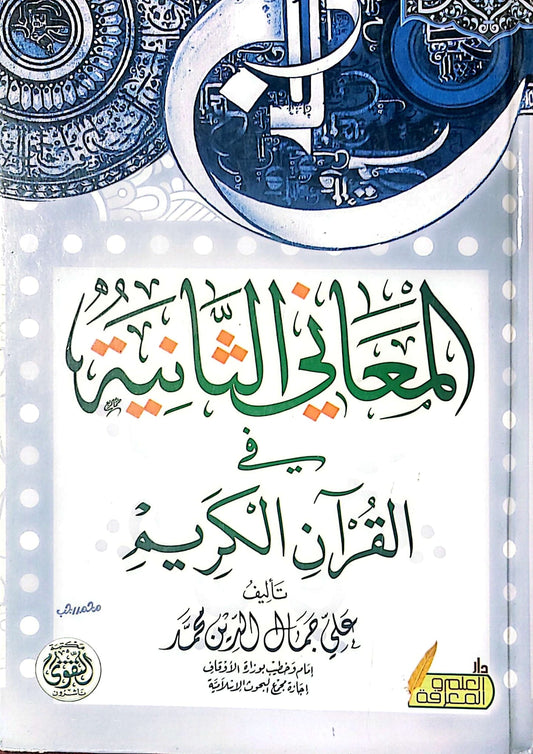 المَعَاني الثَّانِيَةُ
في
القُرْآنِ الْكَرِيْمِ
تأليف
علي جمال الدين محمد
إمام وخطيب بوزارة الأوقاف
إجازة مجمع البحوث الإسلامية
محمد رجب
مكتبة
التقوى
ناشرون
دار
العلم و
المعرفة